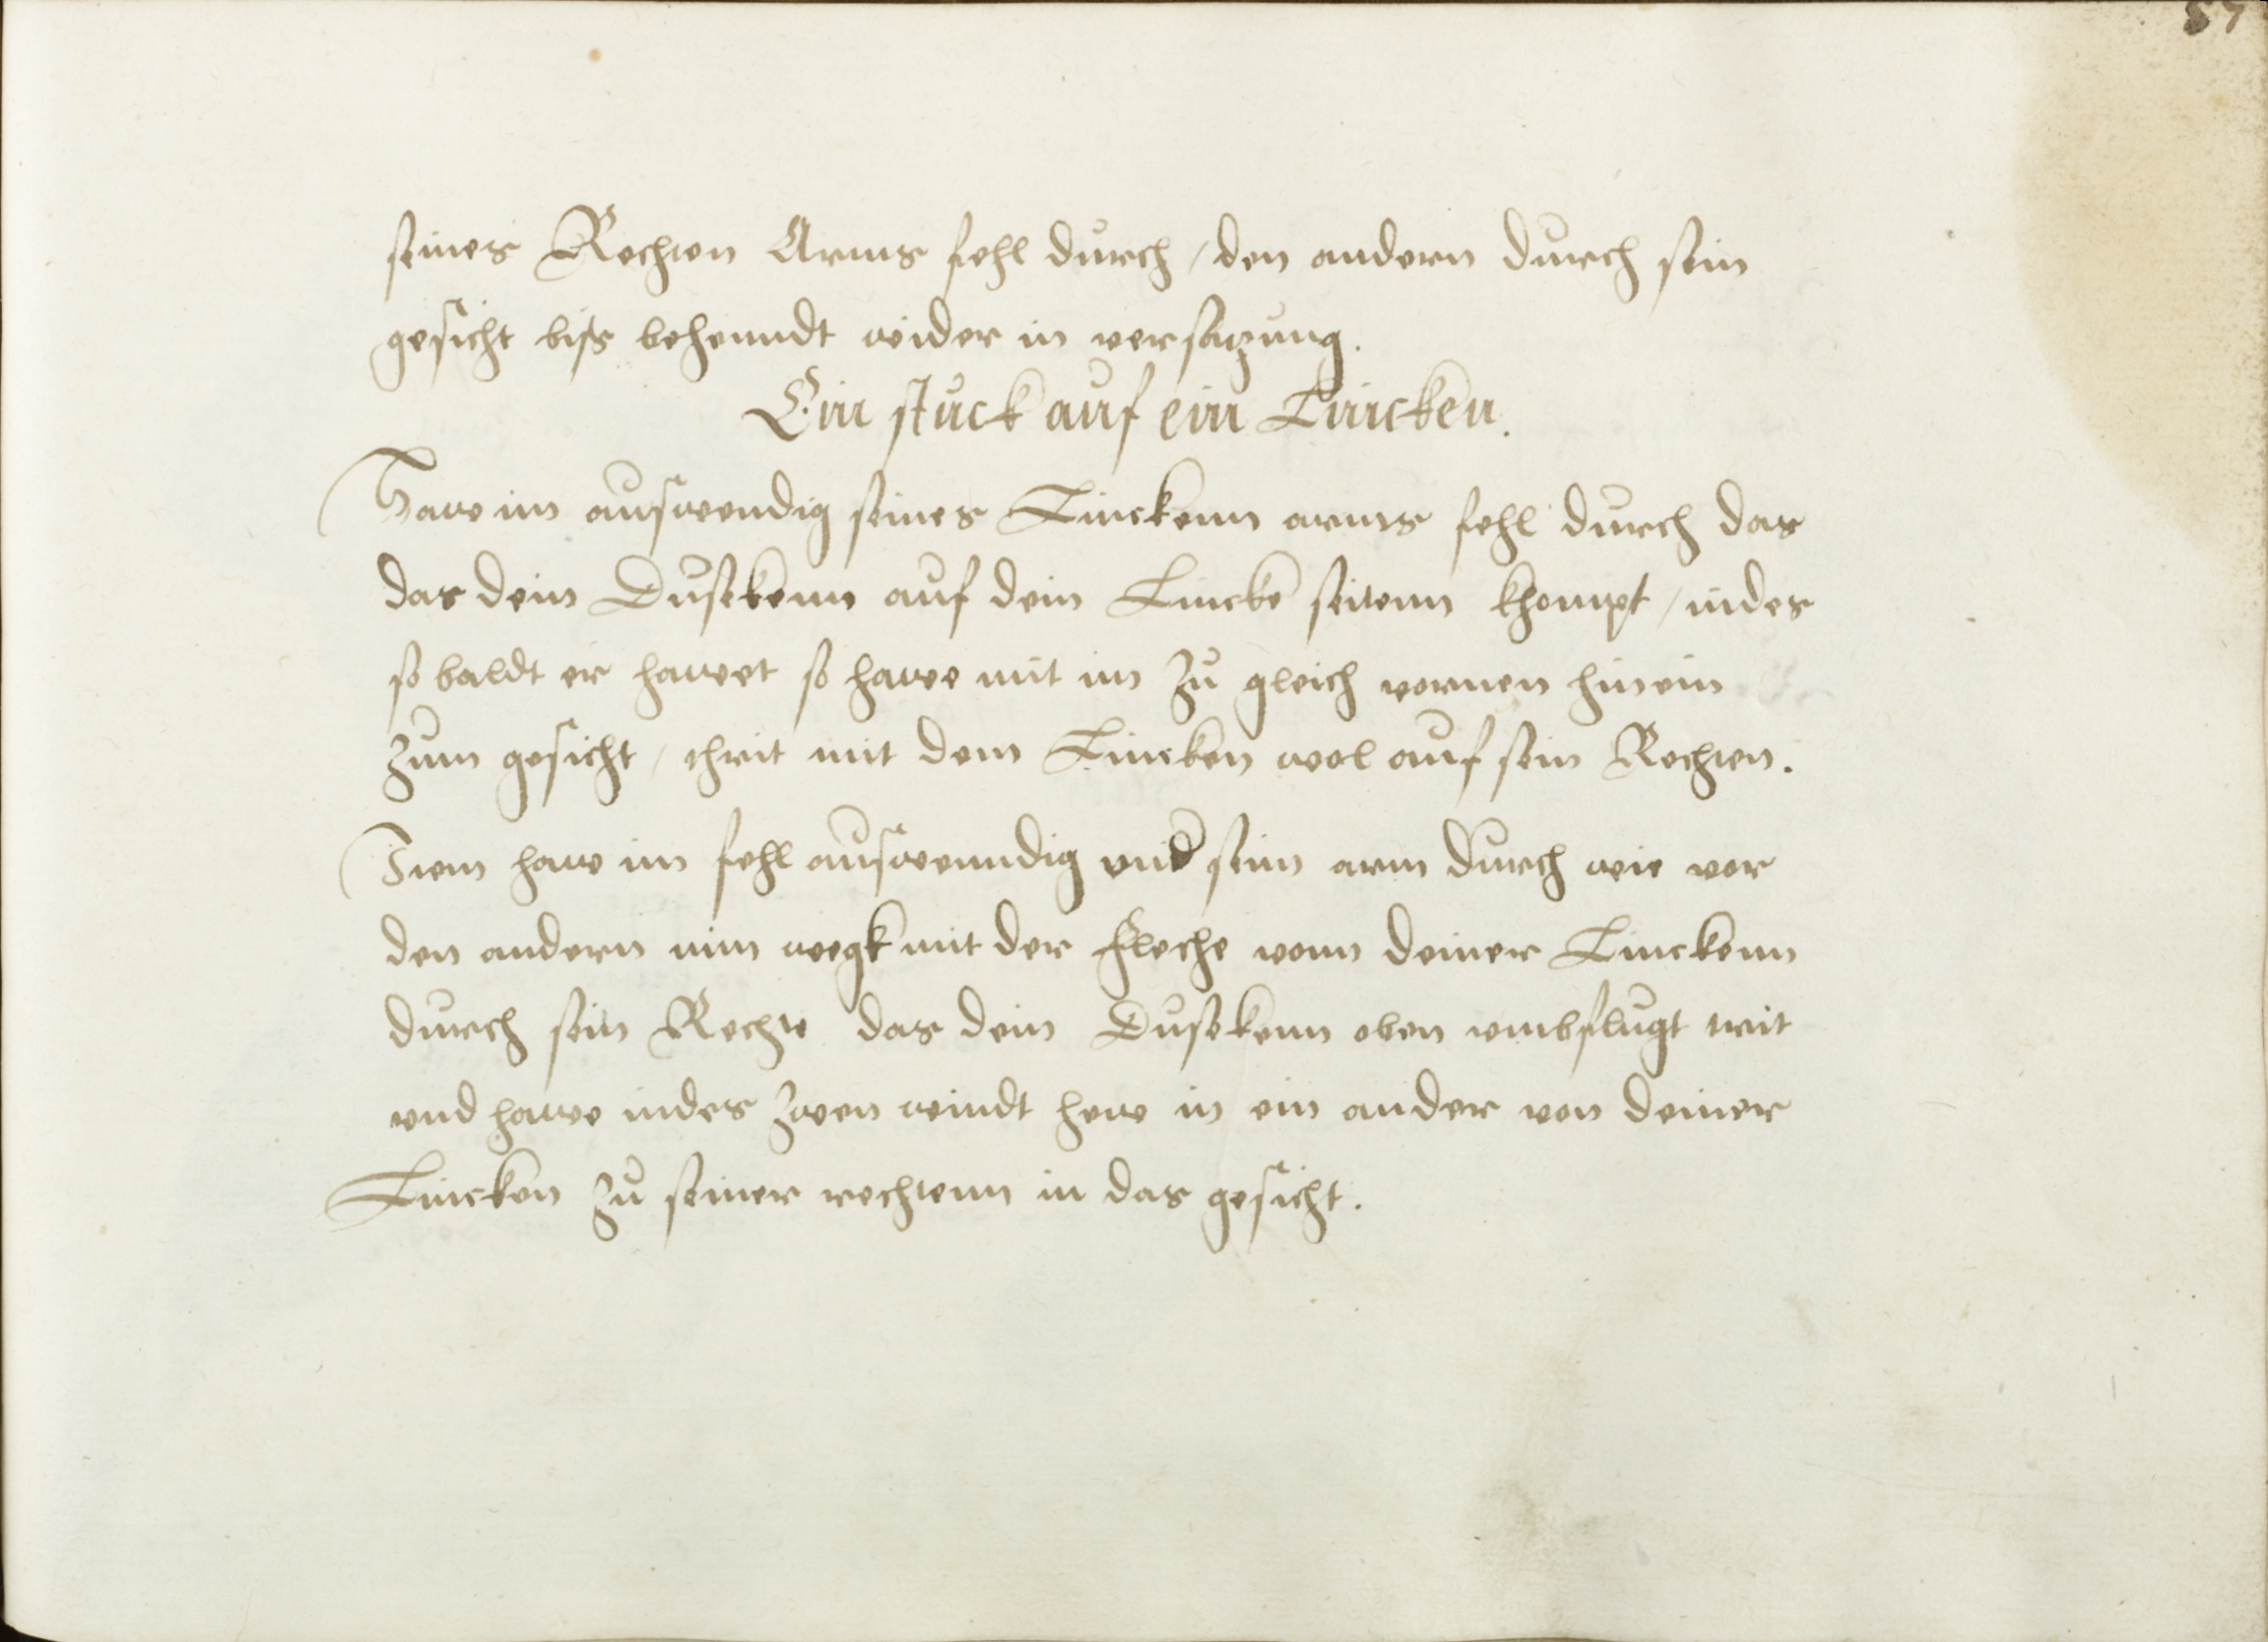 57
seines Rechten Arms fehl durch / den andern durch sein
gesicht biß behenndt wider in versatzung.
Ein stuck auf ein Lincken.
Haw im auswendig seines Linckenn arms fehl durch das
das dein Dusekenn auf dein Lincke seitenn khompt / indes
so baldt er hawet so hawe mit im zu gleich vornen hinein
zum gesicht / thrit mit dem Lincken wol auf sein Rechten.
Item haw im fehl auswenndig vnd seim arm durch wie vor
den andern nim wegk mit der Fleche vonn deiner Linckenn
durch sein Rechte das dein Dusekenn oben vmbflugt trit
vnd hawe indes zwen windt hew in ein ander von deiner
Lincken zu seiner rechtenn in das gesicht.